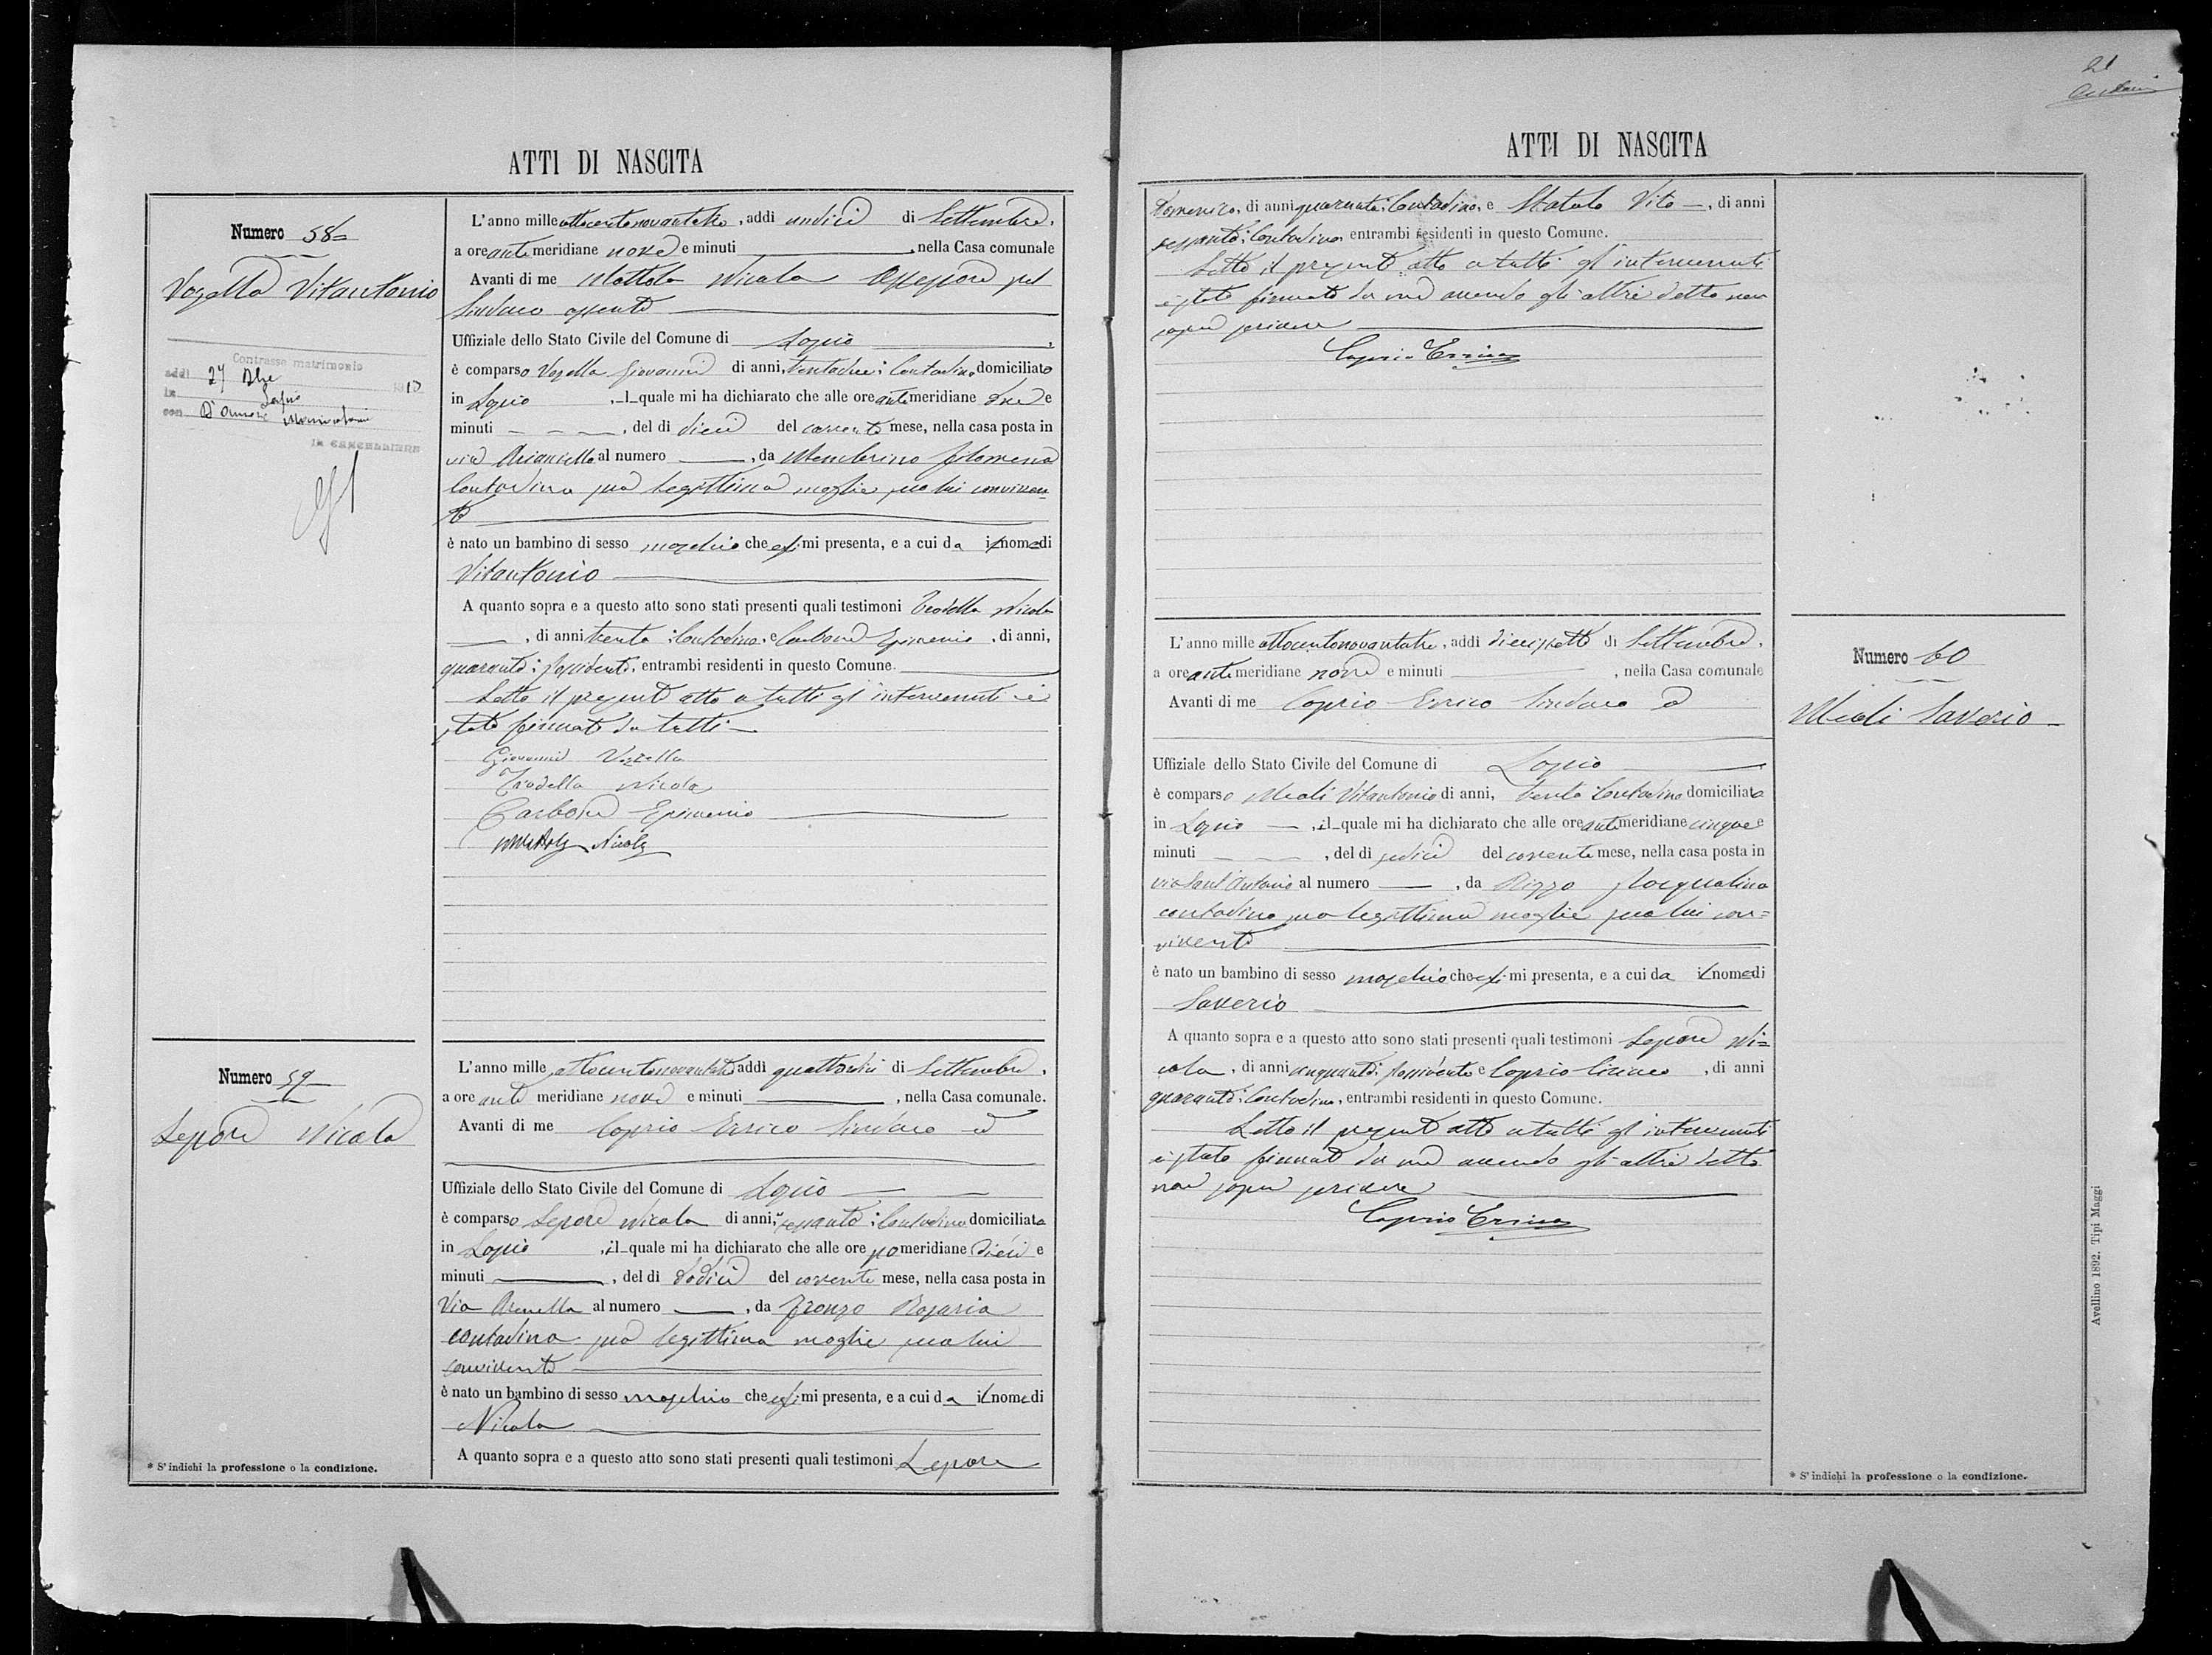 ATTI DI NASCITA
Numero 58
Vozella Vitantonio
Contrasse matrimonio
addì 27
in Lapio
con D'Amore
L'anno mille ottocentonovantatre, addì undici di Settembre,
a ore antimeridiane nove e minuti , nella Casa comunale
Avanti di me Mottola Nicola Assessore pel
Sindaco assente
Uffiziale dello Stato Civile del Comune di Lapio,
è comparso Vozella Giovanni di anni, trentadue; Contadino domiciliato
in Lapio, il quale mi ha dichiarato che alle ore antimeridiane due e
minuti , del dì dieci del corrente mese, nella casa posta in
via Arianiello al numero , da Membrino Filomena
Contadina sua legittima moglie seco lui conviven-
te
è nato un bambino di sesso maschio che egli mi presenta, e a cui da il nome di
Vitantonio
A quanto sopra e a questo atto sono stati presenti quali testimoni Trodella Nicola
, di anni trenta; Contadino, e Carbone Epimenio, di anni,
quaranta; possidente, entrambi residenti in questo Comune.
Letto il presente atto a tutti gl'intervenuti è
stato firmato da tutti
Giovanni Vozella
Trodella Nicola
Carbone Epimenio
Mottola Nicola
Numero 59
Lepore Nicola
L'anno mille ottocentonovantatre, addì quattordici di Settembre,
a ore anti meridiane nove e minuti , nella Casa comunale.
Avanti di me Caprio Errico Sindaco ed
Uffiziale dello Stato Civile del Comune di Lapio
è comparso Lepore Nicola di anni, sessanta; Contadino domiciliato
in Lapio, il quale mi ha dichiarato che alle ore pomeridiane dieci e
minuti , del dì dodici del corrente mese, nella casa posta in
Via Arenella al numero , da Fronzo Rosaria
contadina sua legittima moglie seco lui
convivente
è nato un bambino di sesso maschio che egli mi presenta, e a cui da il nome di
Nicola
A quanto sopra e a questo atto sono stati presenti quali testimoni Lepore
* S'indichi la professione o la condizione.
21
ATTI DI NASCITA
Domenico, di anni quaranta; Contadino, e Statuto Vito, di anni
sessanta; Contadino, entrambi residenti in questo Comune.
Letto il presente atto a tutti gl'intervenuti
è stato firmato da me avendo gli altri detto non
sapere scrivere
Caprio Errico
L'anno mille ottocentonovantatre, addì diecisette di Settembre,
a ore antimeridiane nove e minuti , nella Casa comunale
Avanti di me Caprio Errico Sindaco ed
Uffiziale dello Stato Civile del Comune di Lapio
è comparso Meoli Vitantonio di anni, trenta Contadino domiciliato
in Lapio, il quale mi ha dichiarato che alle ore antimeridiane cinque e
minuti , del dì sedici del corrente mese, nella casa posta in
via Sant'Antonio al numero , da Rizzo Pasqualina
contadina sua legittima moglie seco lui con=
vivente
è nato un bambino di sesso maschio che egli mi presenta, e a cui da il nome di
Saverio
A quanto sopra e a questo atto sono stati presenti quali testimoni Lepore Ni=
cola, di anni cinquanta; possidente e Caprio Ciriaco, di anni
quaranta; Contadino, entrambi residenti in questo Comune.
Letto il presente atto a tutti gl'intervenuti
è stato firmato da me avendo gli altri detto
non sapere scrivere
Caprio Errico
Numero 60
Meoli Saverio
* S'indichi la professione o la condizione.
Avellino 1892. Tipi Maggi